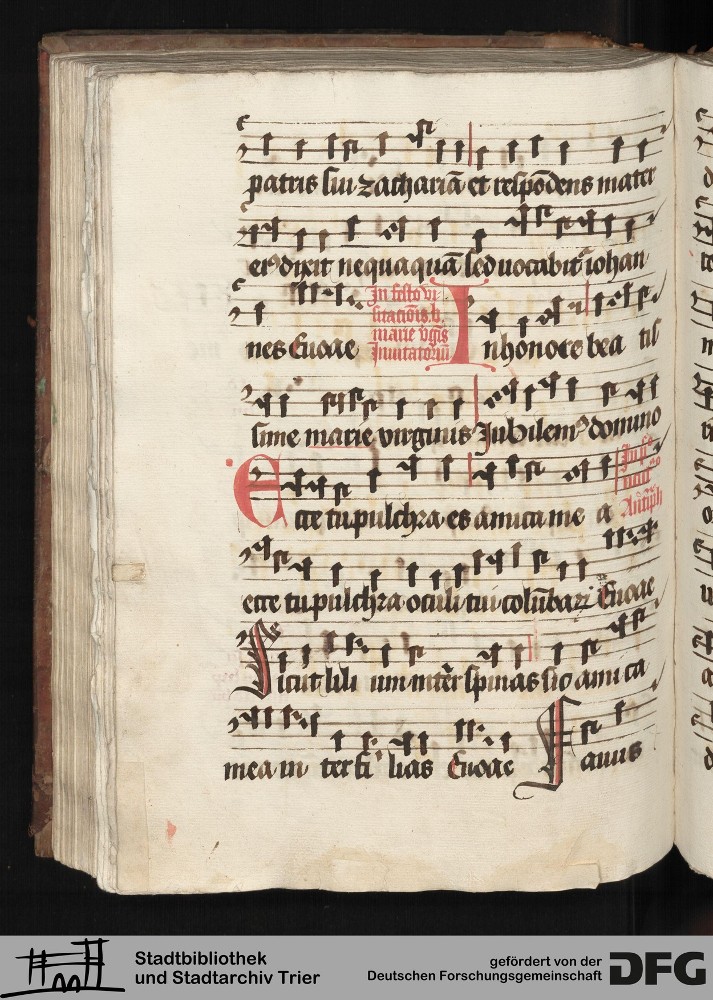 patris sui zachariā et respōdens mater
eiꝰ dixit nequaquā sed uocabit᷑ iohan
nes Euoae
In festo vi-
sitacōis b.
marie v̄gīs
Inuitatoriū
In honore bea tis
sime marie virginis Jubilemꝰ domino
Ecce tu pulchra es amica me a
Antiph
ecce tu pulchra oculi tui colūbaꝝ Euoae
Sicut lili um int̄er spinas sic ami ca
mea in ter fi lias Euoae Fauus
Stadtbibliothek
und Stadtarchiv Trier
gefördert von der
Deutschen Forschungsgemeinschaft
DFG